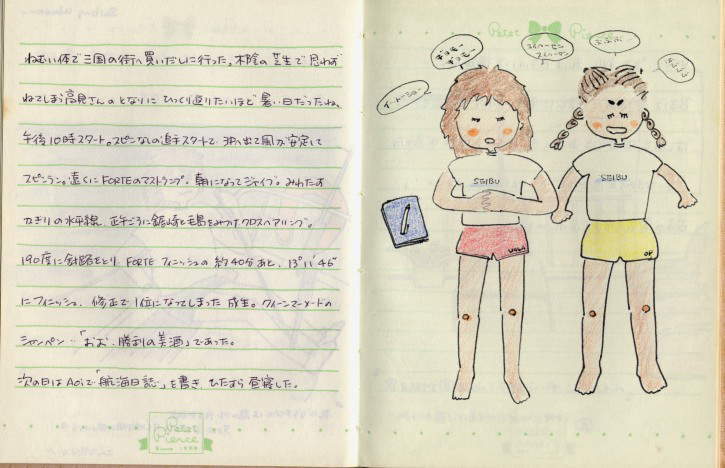 ねむい体で三国の街へ買いだしに行った。木陰の芝生で思わず
ねてしまう高見さんのとなりにひっくり返りたいほど暑い日だったね。
午後10時スタート。スピンなしの追手スタートで、沖へ出て風が安定して
スピンラン。遠くにFORTEのマストランプ。朝になってジャイブ。みわたす
かぎりの水平線、正午ごろに鋸崎と毛島をみつけクロスベアリング。
190度に針路をとり、FORTEフィニッシュの約40分あと、13°11'46"
にフィニッシュ、修正で1位になってしまった
クィーンマーメードの
シャンペン…「おお、勝利の美酒」であった。
次の日はAoiで「航海日誌」を書き、ひたすら昼寝した。
Patet
Pierce
Patet Pi
SEIBU
SEIBU
OP